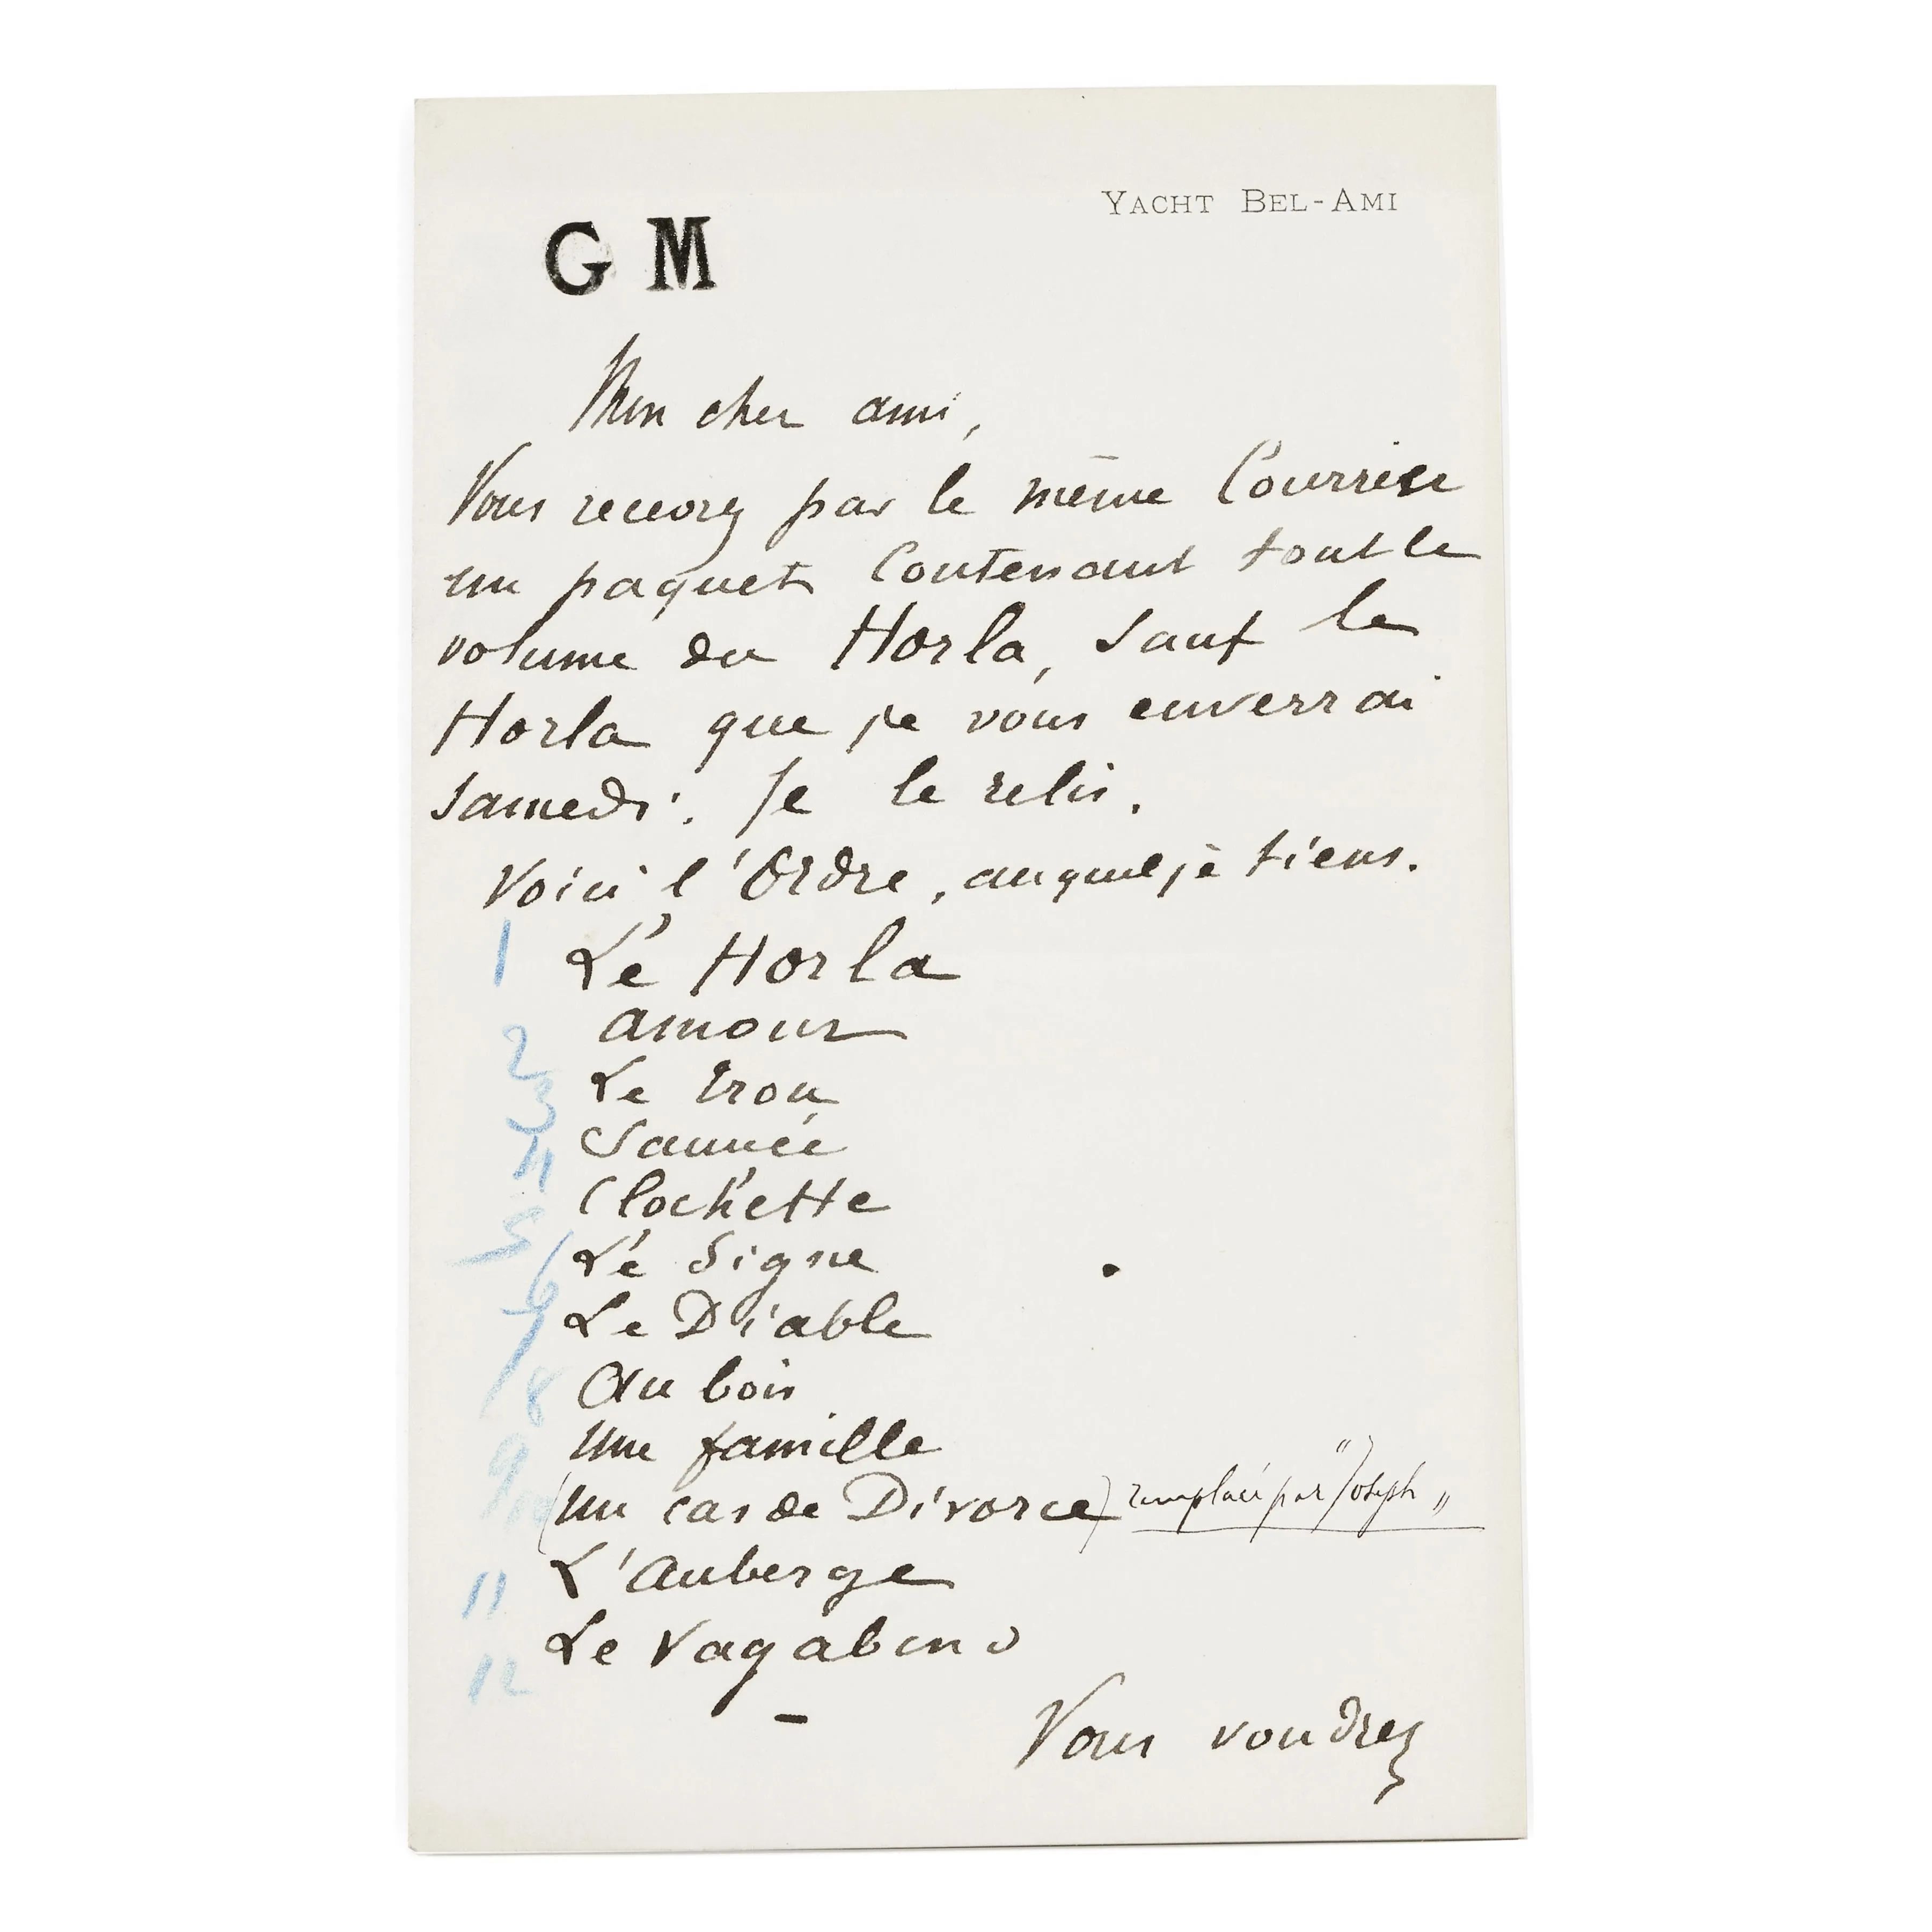 YACHT BEL-AMI
G M
Mon cher ami,
Vous recevez par le même Courrier
un paquet Contenant tout le
volume du Horla, sauf le
Horla que je vous enverrai
samedi. Je le relis.
Voici l'Ordre, auquel je tiens.
1 Le Horla
2 amour
3 Le Trou
4 Sauvée
5 Clochette
6 Le Signe
7 Le Diable
8 Au bois
9 Une famille
10 (Un cas de Divorce) remplacé par "Joseph"
11 L'Auberge
12 Le Vagabond
Vous voudrez